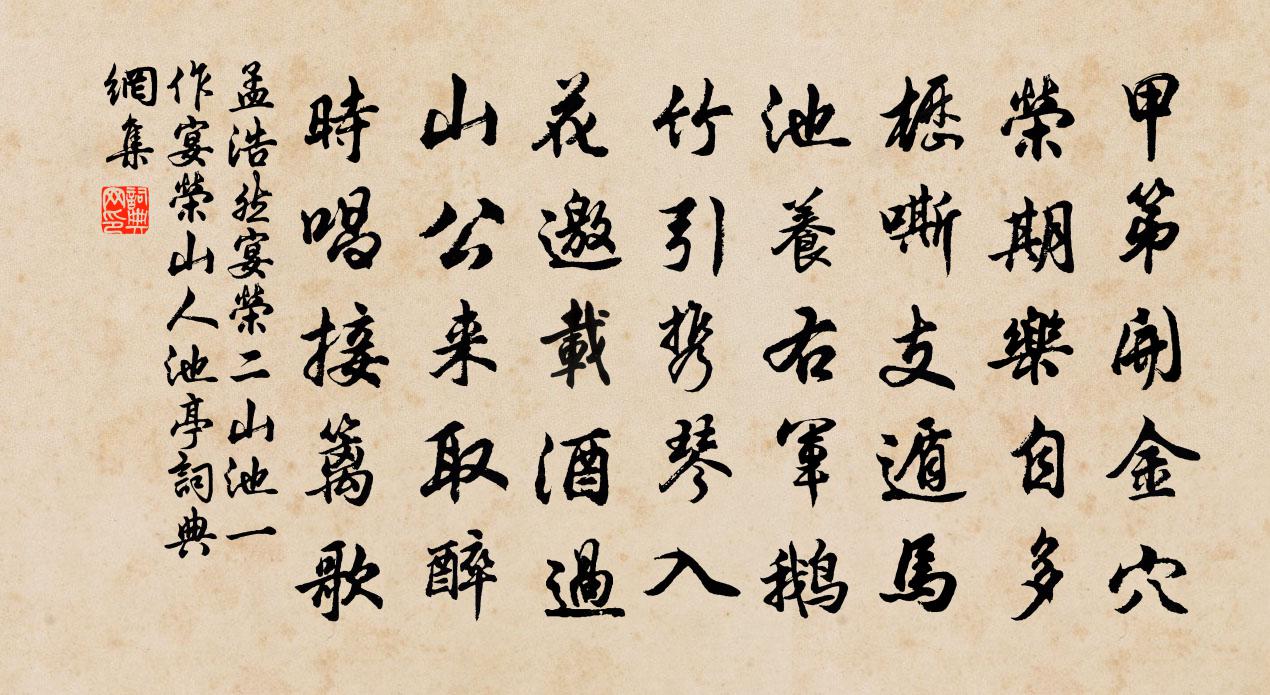 甲第開金穴
榮期樂自多
櫪嘶支遁馬
池養右軍鹅
竹引携琴入
花邀載酒過
山公来取醉
時唱接篱歌
孟浩然宴榮二山池一
作宴榮山人池亭詞典
網集
詞典
网印